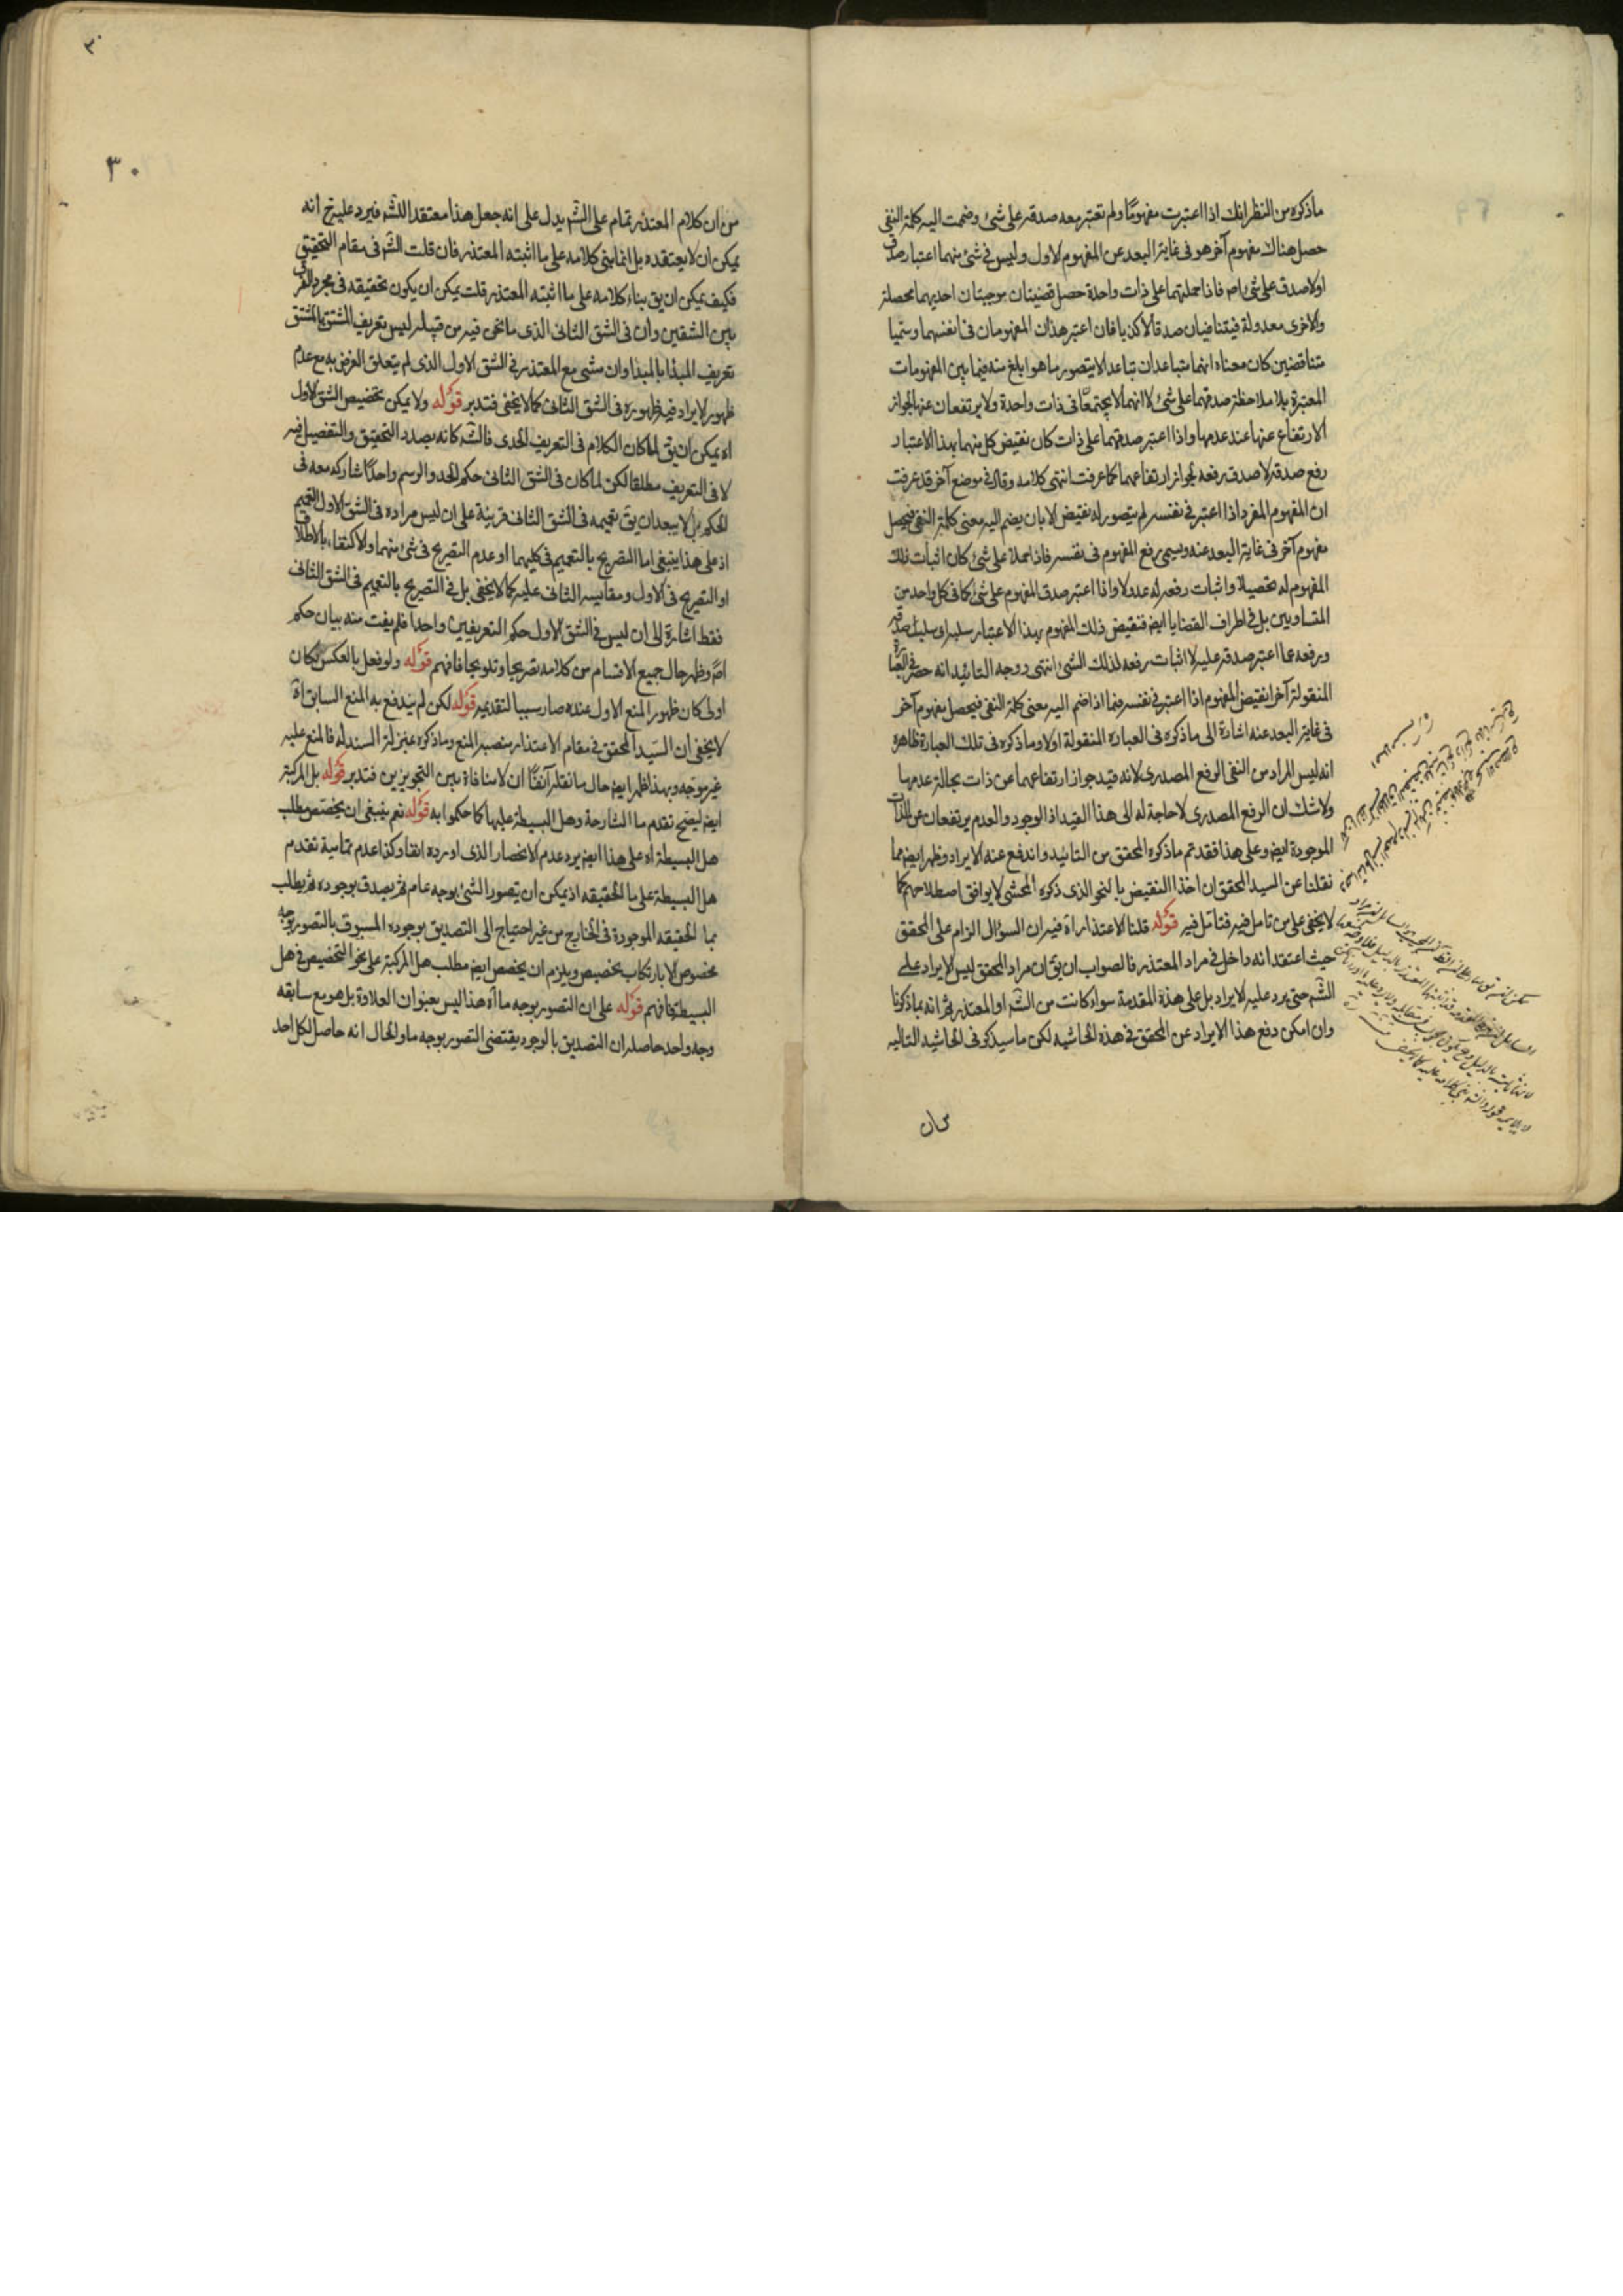 ماذكره من النظر انك اذا اعتبرت مفهومًا ولم تعتبر معه صدقه على شئ وضمت اليه كلمة النفى
حصل هناك مفهوم آخر هو فى غاية البعد عن المفهوم الاول وليس فى شئ منهما اعتبار صدق
اولا صدق على شئ اصلا فاذا حملتهما على ذات واحدة حصل قضيتان موجبتان احديهما محصلة
والاخرى معدولة فيتناقضان صدقا لا كذبا فان اعتبر هذان المفهومان فى انفسهما وسميا
متناقضين كان معناه انهما متباعدان تباعدا لا يتصور ما هو ابلغ منه فيما بين المفهومات
المعتبرة بلا ملاحظة صدقهما على شئ لا انهما لا يجتمعان فى ذات واحدة ولا يرتفعان عنها لجواز
الارتفاع عنها عند عدمها واذا اعتبر صدقهما على ذات كان نقيض كل منهما بهذا الاعتبار
رفع صدقه لا صدق رفعه لجواز ارتفاعهما كما عرفت انتهى كلامه وقال فى موضع آخر قد عرفت
ان المفهوم المفرد اذا اعتبر فى نفسه لم يتصور له نقيض الا بان يضم اليه معنى كلمة النفى فيحصل
مفهوم آخر فى غاية البعد عنه ويسمى رفع المفهوم فى نفسه فاذا حملا على شئ كان اثبات ذلك
المفهوم له تحصيلا واثبات رفعه له عدولا واذا اعتبر صدق المفهوم على شئ كما فى كل واحد من
المتساويين بل فى اطراف القضايا ايضا فنقيض ذلك المفهوم بهذا الاعتبار سلبه اى سلب صدقه
ورفعه عما اعتبر صدقه عليه لا اثبات رفعه لذلك الشئ انتهى ووجه التائيد انه حصر فى العبارة
المنقولة آخرا نقيض المفهوم اذا اعتبر فى نفسه فيما اذا ضم اليه معنى كلمة النفى فيحصل مفهوم آخر
فى غاية البعد عنه اشارة الى ما ذكره فى العبارة المنقولة اولا وما ذكره فى تلك العبارة ظاهره
انه ليس المراد من النفى الرفع المصدرى لانه قيد جواز ارتفاعهما عن ذات بحالة عدمها
ولا شك ان الرفع المصدرى لا حاجة له الى هذا القيد اذ الوجود والعدم يرتفعان عن الذات
الموجودة ايضا وعلى هذا فقد تم ما ذكره المحقق من التائيد واندفع عنه الايراد وظهر ايضا مما
نقلنا عن السيد المحقق ان اخذ النقيض بالنحو الذى ذكره المحشى لا يوافق اصطلاحهم كما
لا يخفى على من تامل فيه فتأمل فيه قوله قلنا الاعتذار آه فيه ان السؤال الزام على المحقق
حيث اعتقد انه داخل فى مراد المعتذر فالصواب ان يق ان مراد المحقق ليس الايراد على
الشه حتى يرد عليه الايراد بل على هذه المقدمة سواء كانت من الشه او المعتذر ثم انه بما ذكرنا
وان امكن دفع هذا الايراد عن المحقق فى هذه الحاشيه لكن ما سيذكر فى الحاشيه التاليه
من ان
٣٠
من ان كلام المعتذر تمام على الشه يدل على انه جعل هذا معتقدا للشه فيرد عليه ح انه
يمكن ان لا يعتقده بل انما بنى كلامه على ما اثبته المعتذر فان قلت الشه فى مقام التحقيق
فكيف يمكن ان يق بناء كلامه على ما اثبته المعتذر قلت يمكن ان يكون تحقيقه فى مجرد الفرق
بين الشقين وان فى الشق الثانى الذى ما نحن فيه من قبيله ليس تعريف المشتق بالمشتق
تعريف المبدا بالمبدا وان مشى مع المعتذر فى الشق الاول الذى لم يتعلق الغرض به مع عدم
ظهور الايراد فيه ظهوره فى الشق الثانى كما لا يخفى فتدبر قوله ولا يمكن تخصيص الشق الاول
آه يمكن ان يق لما كان الكلام فى التعريف الحدى فالشه كانه بصدد التحقيق والتفصيل فيه
لا فى التعريف مطلقا لكن لما كان فى الشق الثانى حكم الحد والرسم واحدًا شاركه معه فى
الحكم بل لا يبعد ان يق تعميمه فى الشق الثانى قرينة على ان ليس مراده فى الشق الاول التعميم
اذ على هذا ينبغى اما التصريح بالتعميم فى كليهما او عدم التصريح فى شئ منهما والاكتفاء بالاطلاق
او التصريح فى الاول ومقايسه الثانى عليه كما لا يخفى بل فى التصريح بالتعميم فى الشق الثانى
فقط اشارة الى ان ليس فى الشق الاول حكم التعريفين واحدا فلم يفت منه بيان حكم
اصلا وظهر حال جميع الاقسام من كلامه تصريحا وتلويحا فافهم قوله ولو فعل بالعكس لكان
اولى كان ظهور المنع الاول عنده صار سببا لتقديمه قوله لكن لم يندفع به المنع السابق آه
لا يخفى ان السيد المحقق فى مقام الاعتذار منصبه المنع وما ذكره بمنزلة السند له فالمنع عليه
غير موجه وبهذا ظهر ايضا حال ما نقله آنفًا ان لا منافاة بين التجويزين فتدبر قوله بل المركبة
ايضا ليصح تقدم ما الشارحة وهل البسيطة عليها كما حكموا به قوله نعم ينبغى ان يخصص مطلب
هل البسيطة آه على هذا ايضا يرد عدم الانحصار الذى اورده انفا وكذا عدم تمامية تقدم
هل البسيطة على ما الحقيقه اذ يمكن ان يتصور الشئ بوجه عام ثم يصدق بوجوده ثم يطلب
بما الحقيقه الموجودة فى الخارج من غير احتياج الى التصديق بوجوده المسبوق بالتصور بوجه
مخصوص الا بارتكاب تخصيص ويلزم ان يخصص ايضا مطلب هل المركبة على نحو التخصيص فى هل
البسيطة فافهم قوله على ان التصور بوجه ما آه هذا ليس بعنوان العلاوة بل هو مع سابقه
وجه واحد حاصله ان التصديق بالوجود يقتضى التصور بوجه ما والحال انه حاصل لكل احد